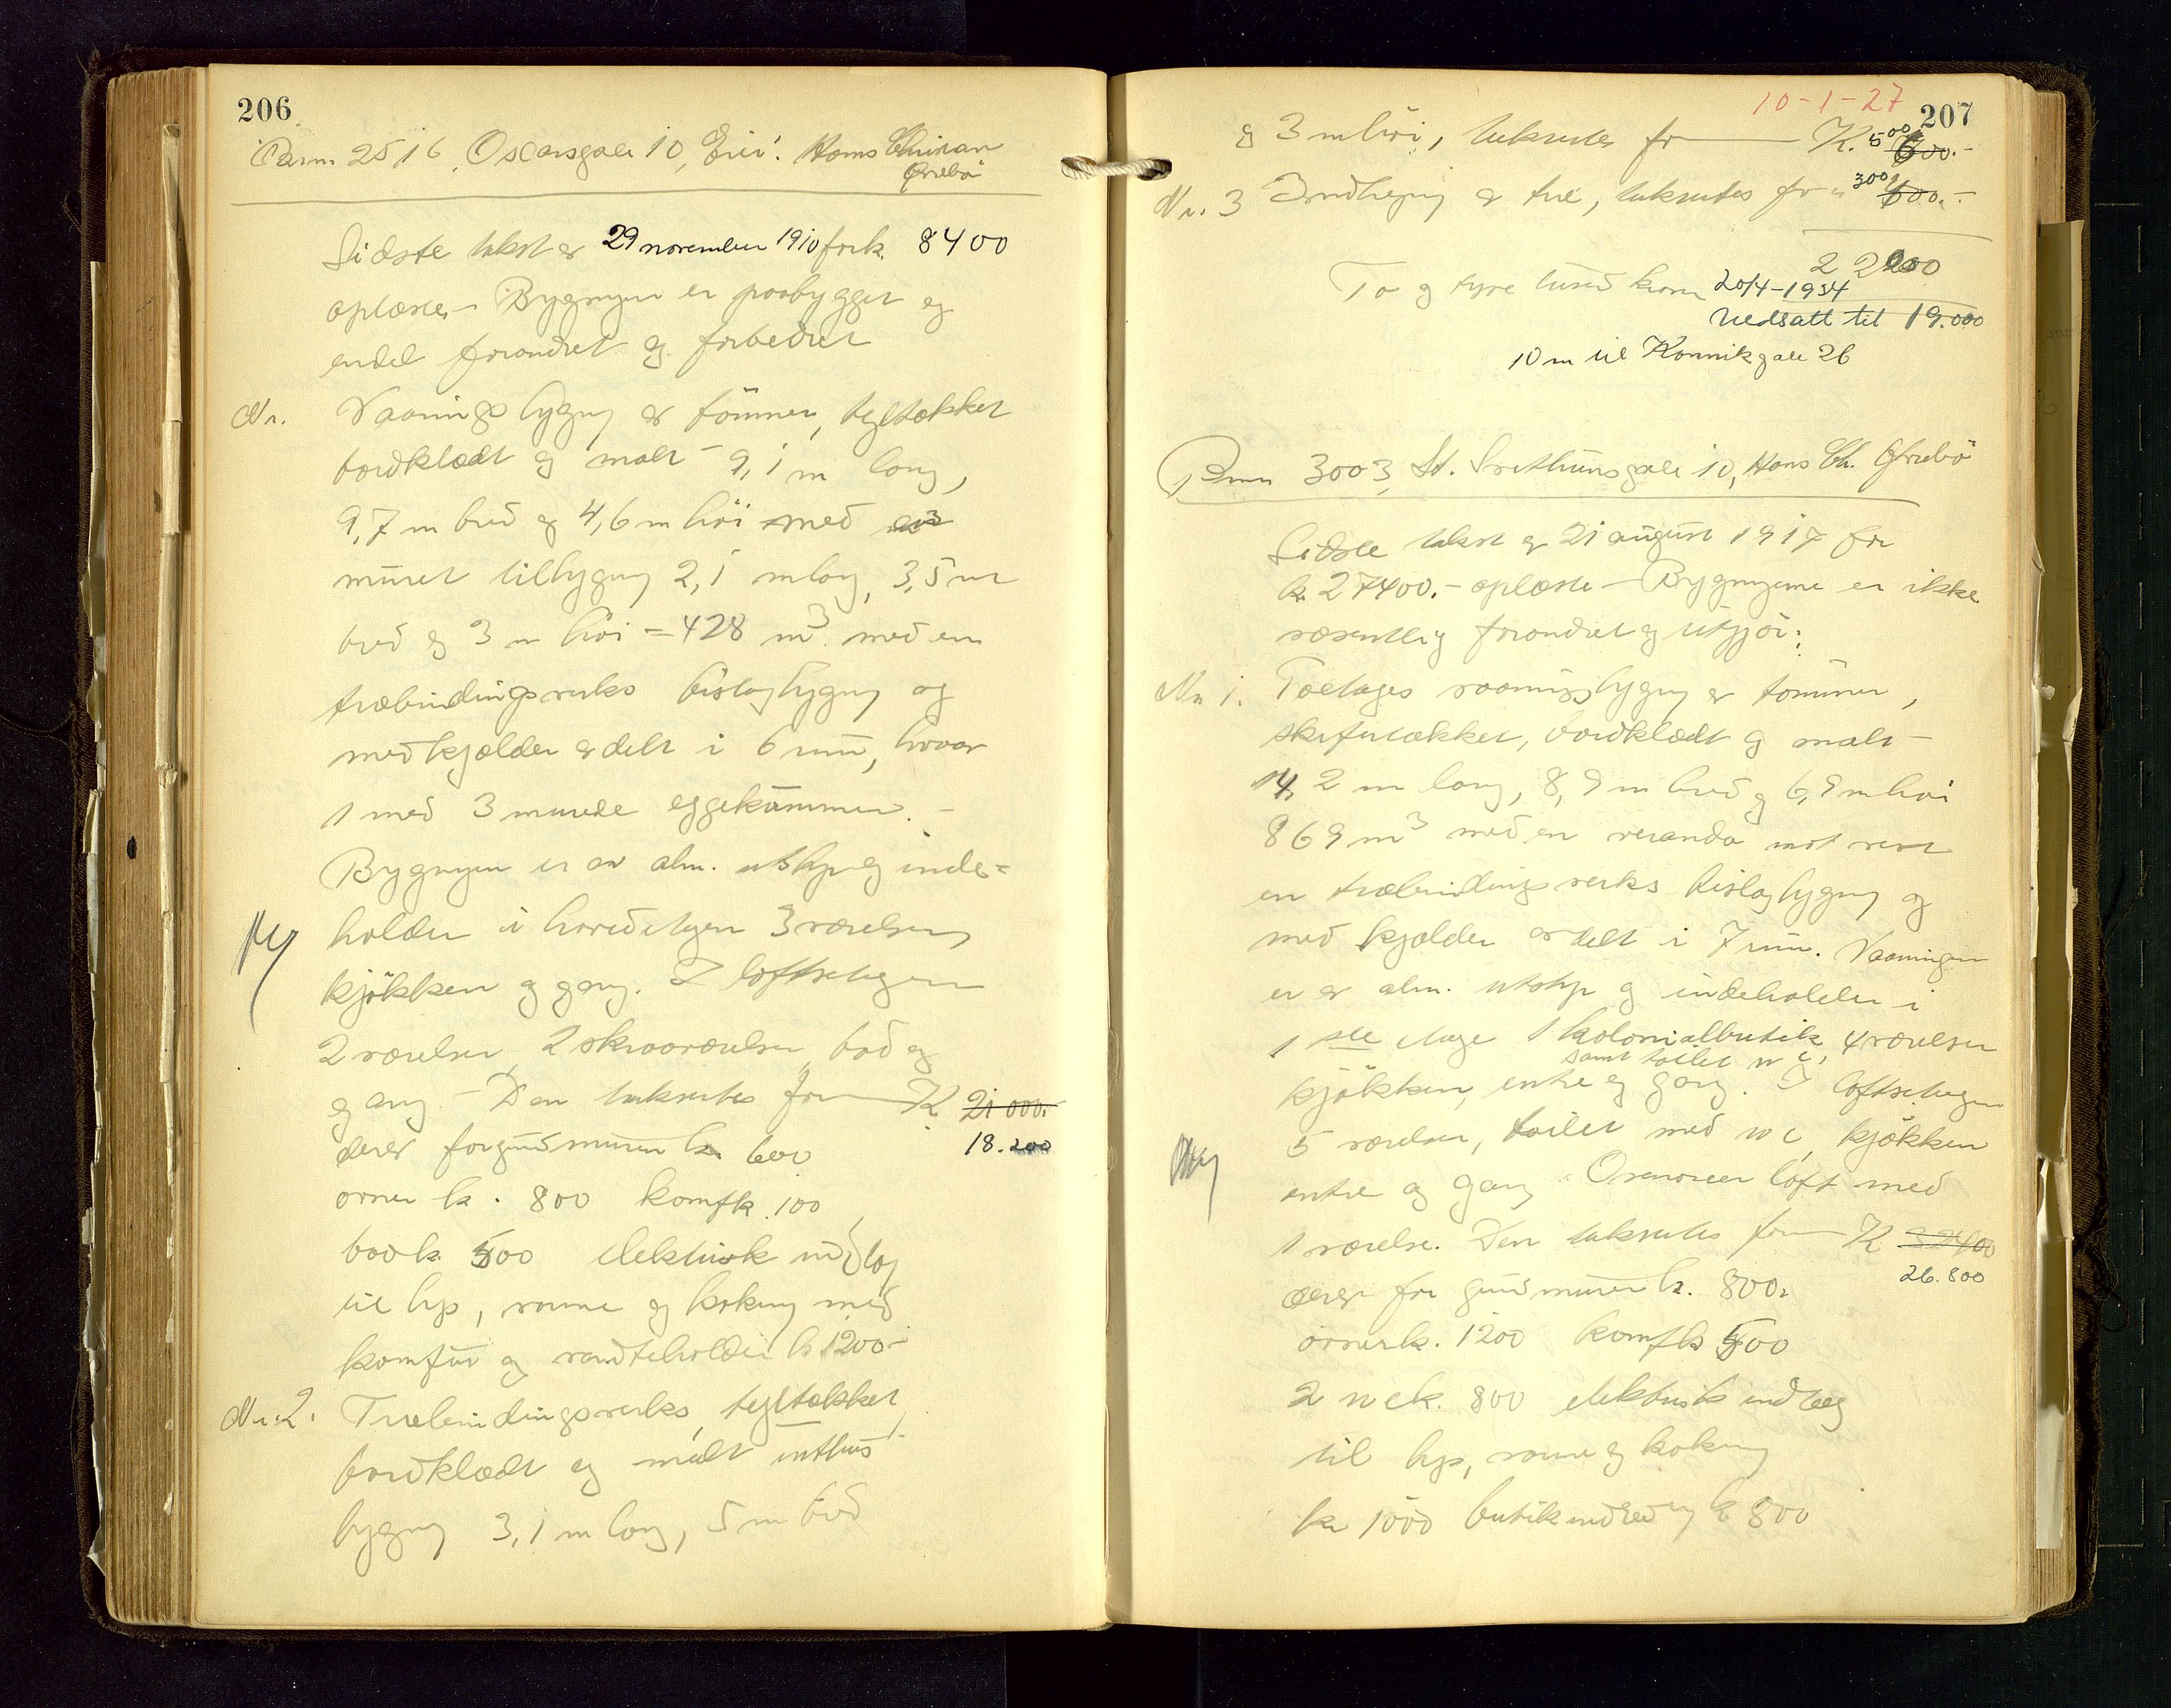 206
Brnr. 2516, Oscarsgate 10, Eier: Hans Chirian
Ørrebø
Sidste takst er 29 november 1910 for k. 8400
oplæstes – Bygningen er paabygget og
endel forandret og forbedret
Nr. Vaaningsbygning av tömmer, tegltækket
bordklædt og malt – 9,1 m lang,
9,7 m bred og 4,6 m höi med en
muret tilbygning 2,1 m lang, 3,5 m
bred og 3 m höi = 428 m³ med en
træbindingsverks bislagbygning og
med kjælder avdelt i 6 rum, hvorav
1 med 3 murede eggekummer. –
Bygningen er av alm. utstyr og inde-
holder i hovedetagen 3 værelser,
kjökken og gang. I loftsetagen
2 værelser, 2 skraaværelser, bad og
gang – Den takseres for K 21 000.-
derav for grundmuren k. 600 18.200
ovner k. 800 komf k. 100
bad k. 500 elektrisk indlæg
til lys, varme og kokning med
komfür og vandbeholder k 1200 –
Nr. 2. Træbindingsverks, tegltækket,
bordklædt og malt uthus-
bygning 3,1 m lang, 5 m bred
10-1-27 207
og 3 m höi, takseres for K. 500 600.-
Nr. 3 Indhegning av træ, takseres for " 300 400.-
22200
To og tyve tused kroner 20/4-1934
Nedsatt til 19.000
10 m til Kannikgate 26
Brnr 3003, St. Svithunsgate 10, Hans Ch. Ørrebø
Sidste takst av 21 august 1917 for
k. 27400.- oplæstes – Bygningerne er ikke
væsentlig forandret og utgjör:
Nr 1. Toetages vaaningsbygning av tömmer,
skifertækket, bordklædt og malt –
14,2 m lang, 8,9 m bred og 6,9 m höi
869 m³ med en veranda mot vest
en træbindingsverks bislagbygning og
med kjælder avdelt i 7 rum. Vaaningen
er av alm. utstyr og indeholder i
1ste etage 1 kolonialbutik, 4 værelser
samt toilet w c,
kjökken, entre og gang. I loftsetagen
5 værelser, toilet med w c, kjökken
entre og gang. Ovenover loft med
1 værelse. Den takseres for K
26.800
derav for grundmuren k. 800.
ovner k. 1200 komf k 500
2 wc k. 800 elektrisk indlæg
til lys, varme og kokning
kr 1000 butikindredning k 800